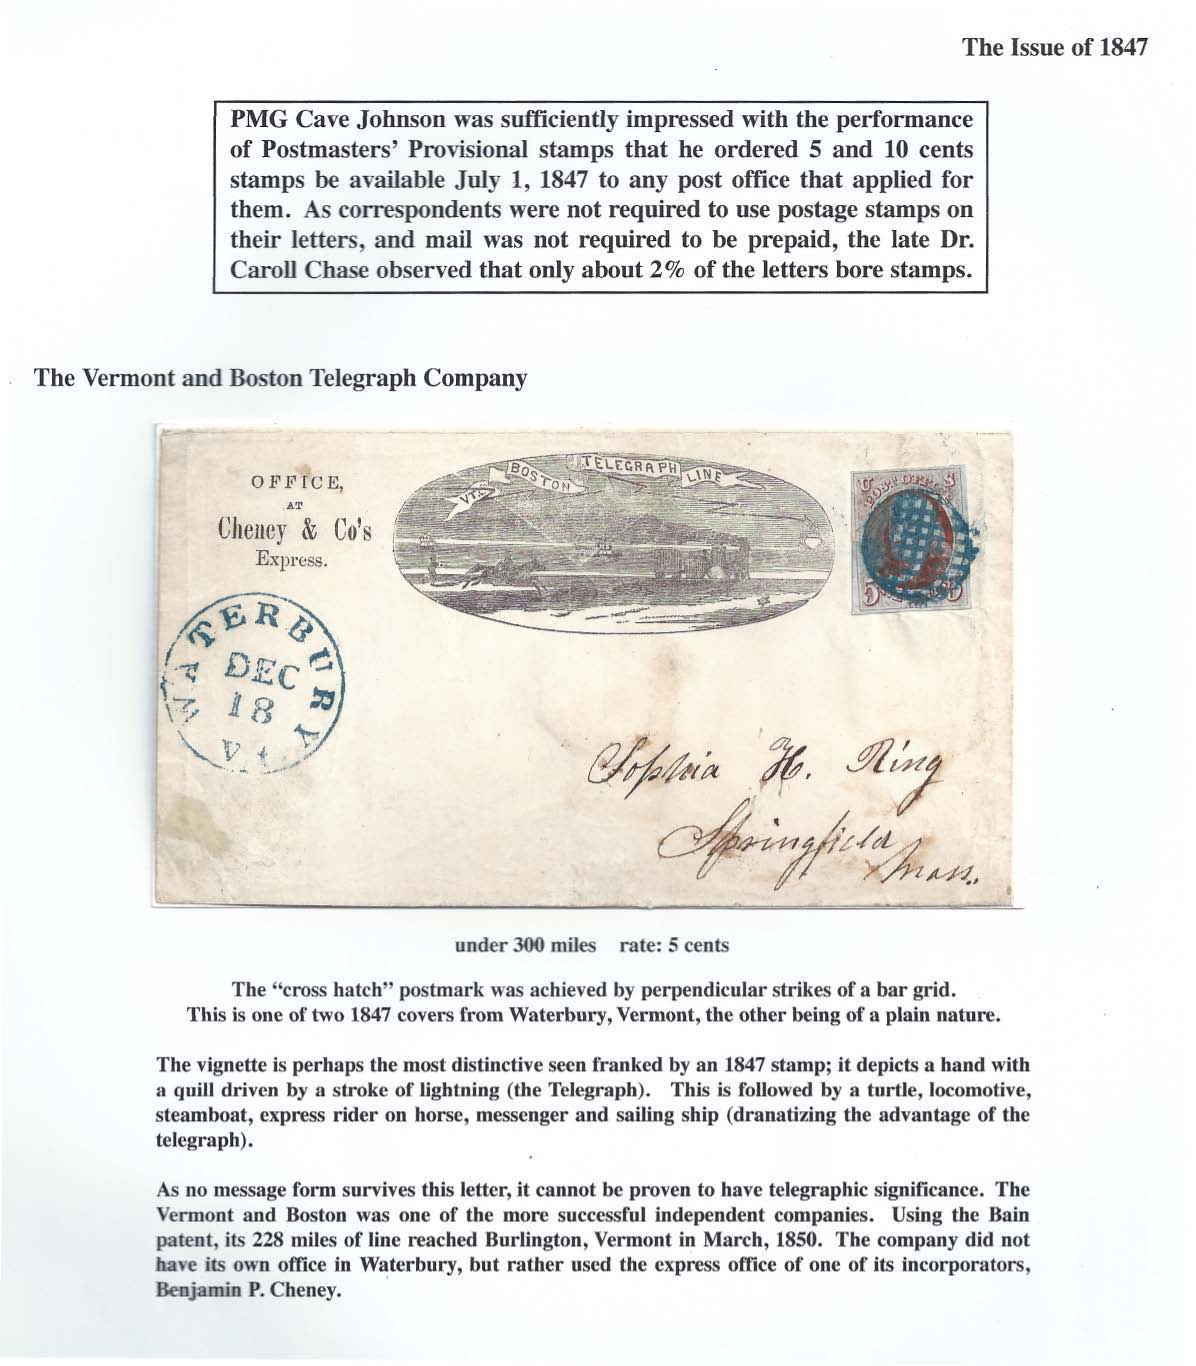 The Issue of 1847
PMG Cave Johnson was sufficiently impressed with the performance
of Postmasters' Provisional stamps that he ordered 5 and 10 cents
stamps be available July 1, 1847 to any post office that applied for
them. As correspondents were not required to use postage stamps on
their letters, and mail was not required to be prepaid, the late Dr.
Caroll Chase observed that only about 2% of the letters bore stamps.
The Vermont and Boston Telegraph Company
OFFICE,
AT
Cheney & Co's
Express.
VT. BOSTON TELEGRAPH LINE
U S
POST OFFICE
WATERBURY
DEC
18
Vt.
Sophia H. Ring
Springfield
Mass.
under 300 miles rate: 5 cents
The "cross hatch" postmark was achieved by perpendicular strikes of a bar grid.
This is one of two 1847 covers from Waterbury, Vermont, the other being of a plain nature.
The vignette is perhaps the most distinctive seen franked by an 1847 stamp; it depicts a hand with
a quill driven by a stroke of lightning (the Telegraph). This is followed by a turtle, locomotive,
steamboat, express rider on horse, messenger and sailing ship (dranatizing the advantage of the
telegraph).
As no message form survives this letter, it cannot be proven to have telegraphic significance. The
Vermont and Boston was one of the more successful independent companies. Using the Bain
patent, its 228 miles of line reached Burlington, Vermont in March, 1850. The company did not
have its own office in Waterbury, but rather used the express office of one of its incorporators,
Benjamin P. Cheney.